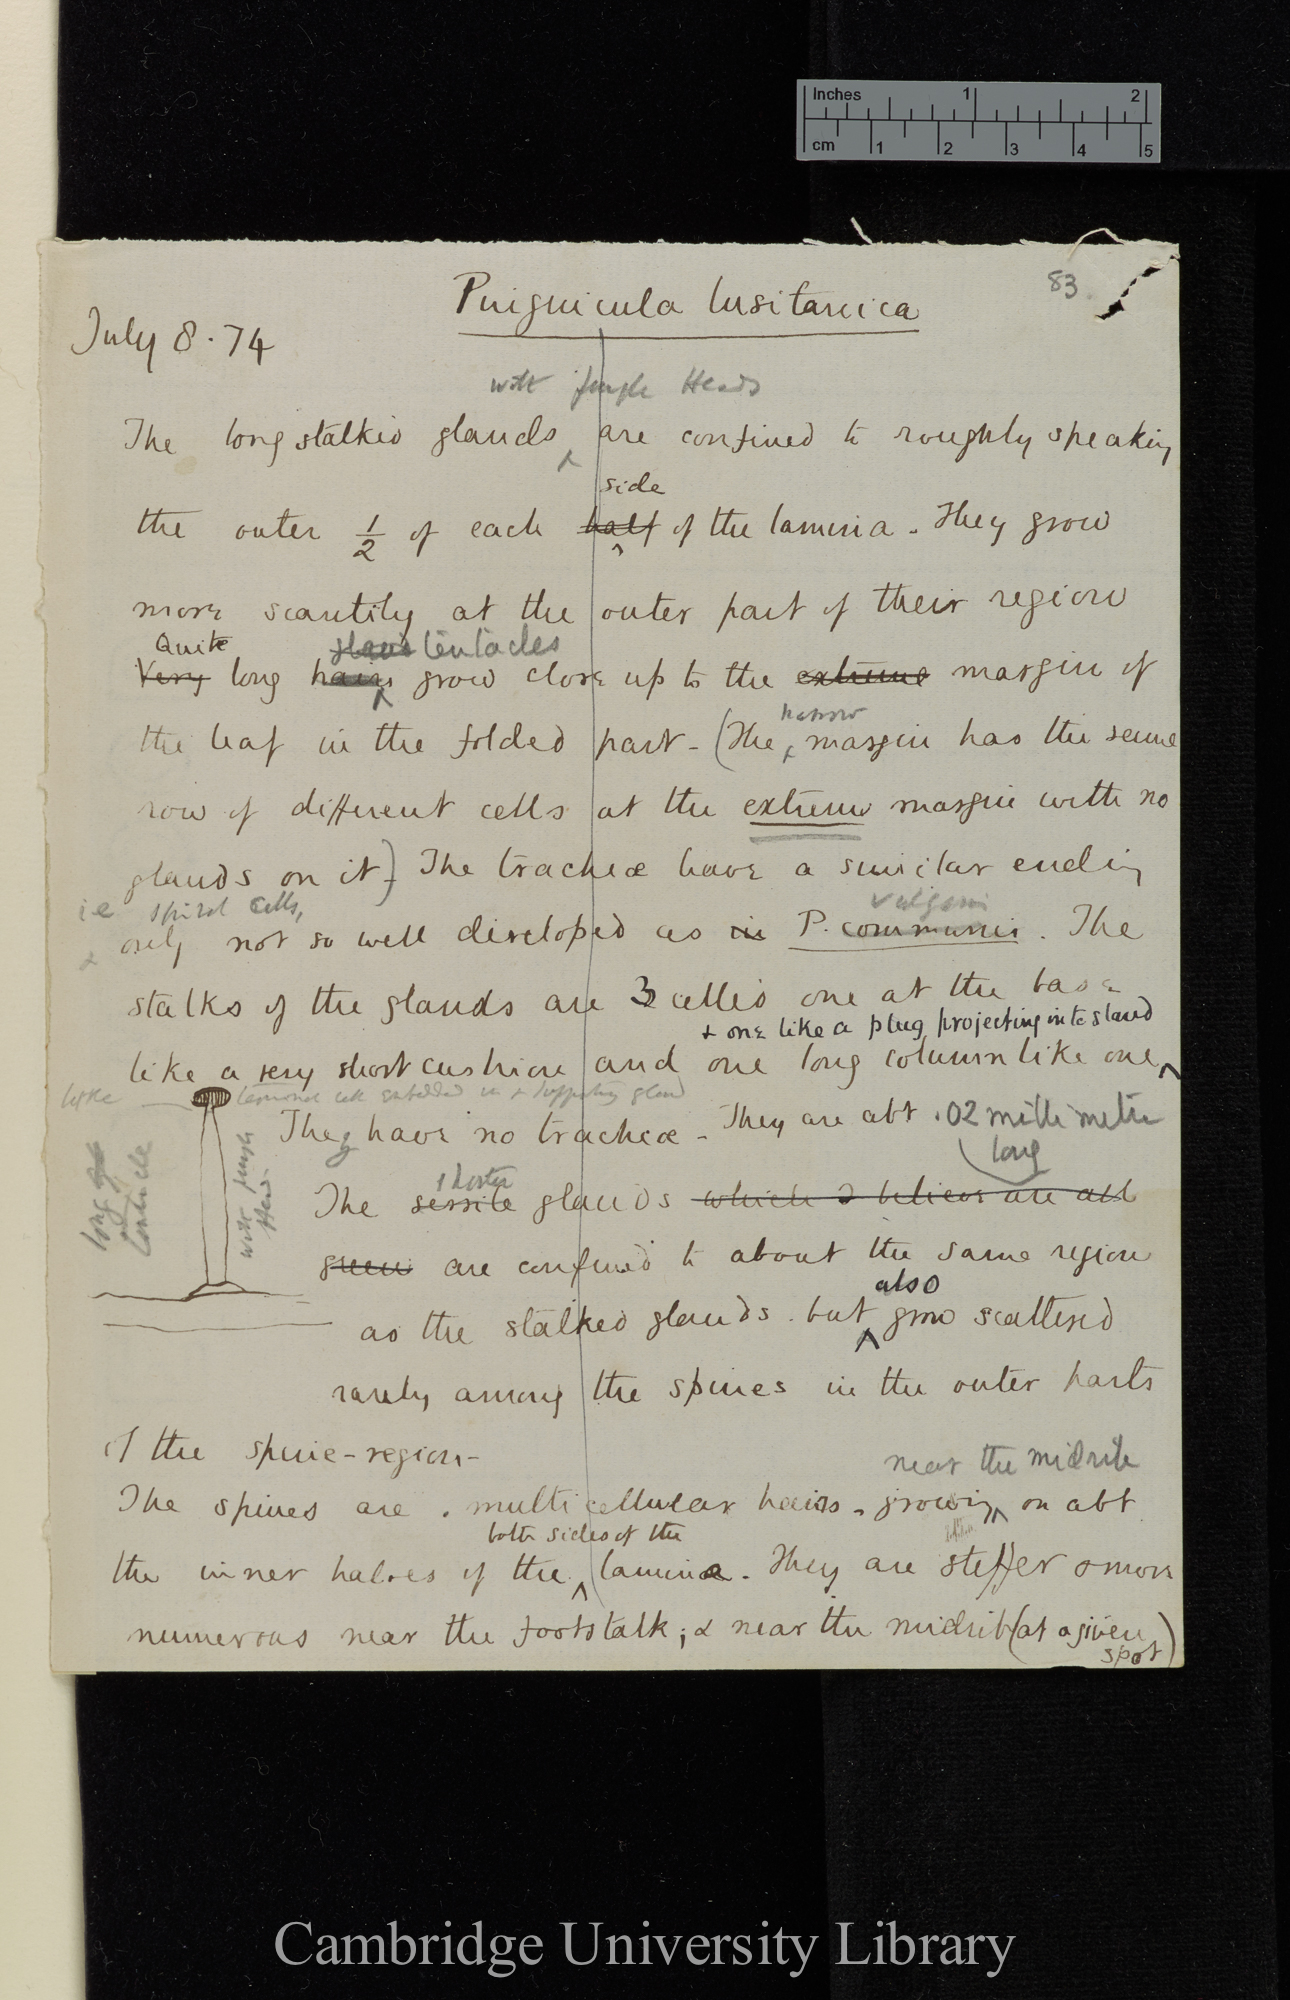 Inches 1 2
cm 1 2 3 4 5
83
Pinguicula lusitanica
July 8. 74
with fungle Heads
The long stalked glands are confined to roughly speaking
side
the outer 1/2 of each half of the lamina. They grow
more scantily at the outer part of their region
Quite tentacles
Very long hairs grow close up to the extreme margin of
narrow
the leaf in the folded part - (The margin has the same
row of different cells at the extreme margin with no
glands on it) The tracheæ have a similar ending
i.e spiral cells, vulgaris
& only not so well developed as in P. communis. The
stalks of the glands are 3 celled one at the base
& one like a plug projecting into gland
like a very short cushion and one long column like one
like
They have no tracheæ - They are abt .02 millimetre
long
long
tentacle
with
Head
shorter
The sessile glands which I believe are all
green are confined to about the same region
also
as the stalked glands. but grow scattered
rarely among the spines in the outer parts
of the spine-region-
near the midrib
The spines are. multicellular hairs - growing on abt
both sides of the
the inner halves of the lamina. They are stiffer & more
numerous near the footstalk; & near the midrib (at a given
spot)
Cambridge University Library